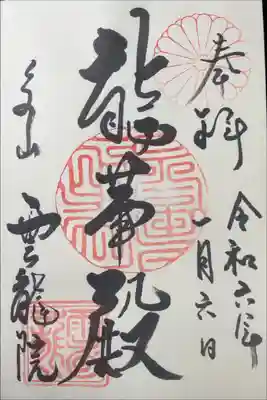 奉拝
令和六年
一月六日
龍華殿
泉山
雲龍院